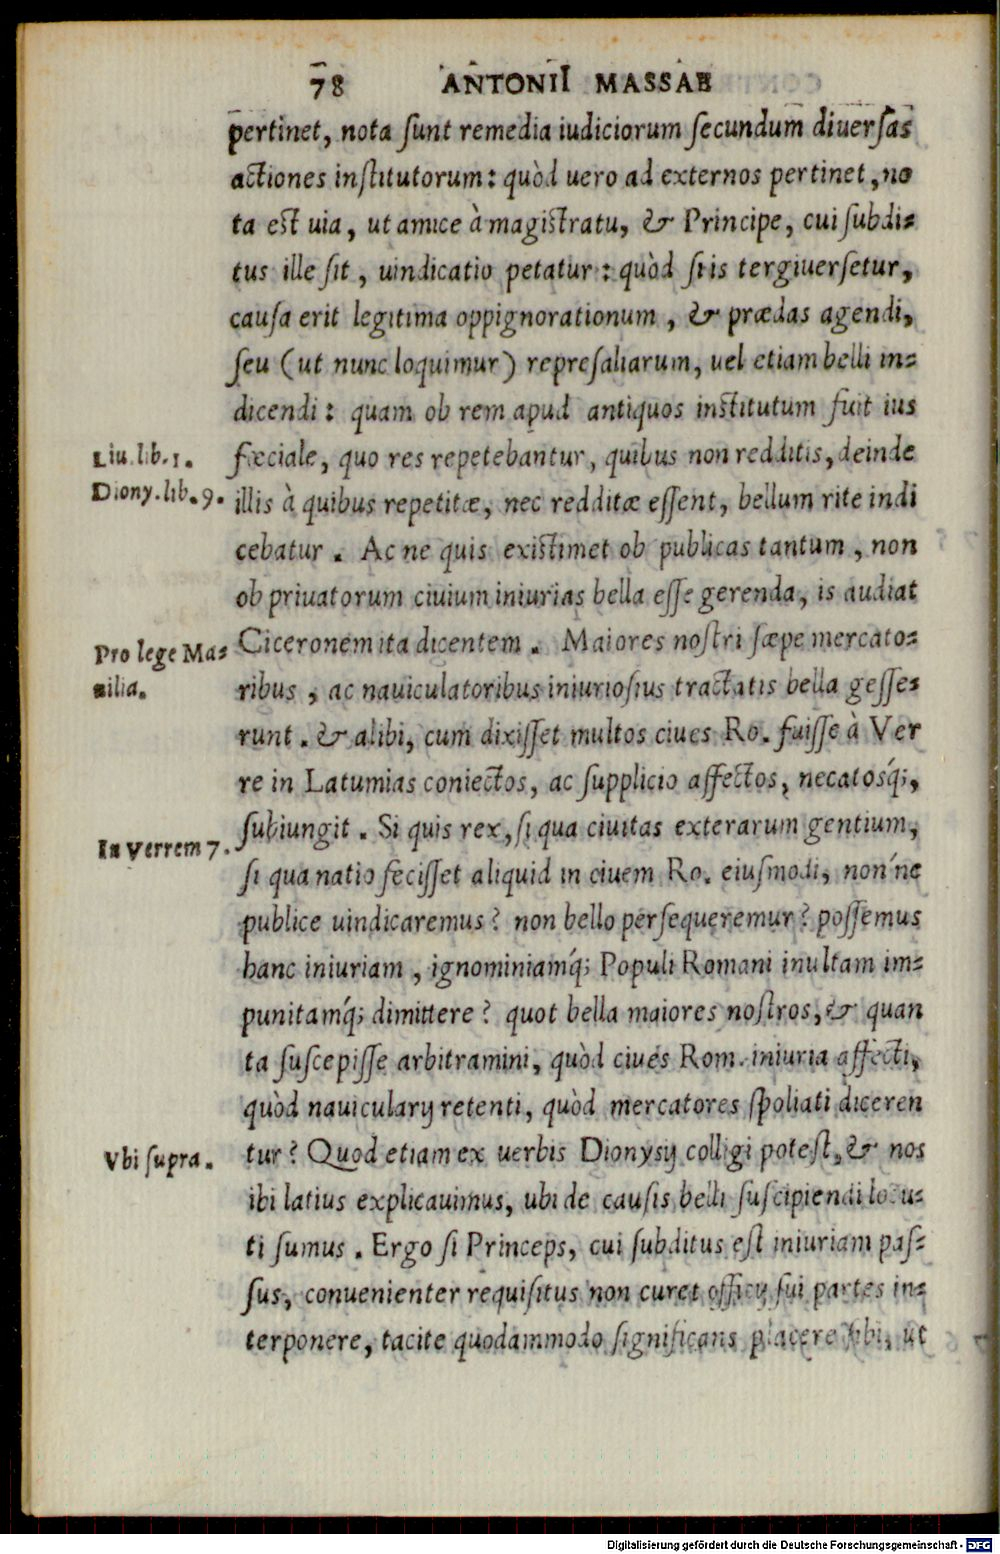 78 ANTONII MASSAE
pertinet, nota ſunt remedia iudiciorum ſecundum diuerſas
actiones inſtitutorum: quòd uero ad externos pertinet, no
ta eſt uia, ut amice à magiſtratu, & Principe, cui ſubdi-
tus ille ſit, uindicatio petatur: quòd ſi is tergiuerſetur,
cauſa erit legitima oppignorationum, & prædas agendi,
ſeu (ut nunc loquimur) repreſaliarum, uel etiam belli in-
dicendi: quam ob rem apud antiquos inſtitutum fuit ius
Liu. lib. 1.
fæciale, quo res repetebantur, quibus non redditis, deinde
Diony. lib. 9.
illis à quibus repetitæ, nec redditæ eſſent, bellum rite indi
cebatur. Ac ne quis exiſtimet ob publicas tantum, non
ob priuatorum ciuium iniurias bella eſſe gerenda, is audiat
Pro lege Ma-
Ciceronem ita dicentem. Maiores noſtri ſæpe mercato-
nilia.
ribus, ac nauiculatoribus iniurioſius tractatis bella geſſe-
runt. & alibi, cum dixiſſet multos ciues Ro. fuiſſe à Ver
re in Latumias coniectos, ac ſupplicio affectos, necatosq́;,
ſubiungit. Si quis rex, ſi qua ciuitas exterarum gentium,
In Verrem 7.
ſi qua natio feciſſet aliquid in ciuem Ro. eiuſmodi, non'ne
publice uindicaremus? non bello perſequeremur? poſſemus
hanc iniuriam, ignominiamq́; Populi Romani inultam im-
punitamq́; dimittere? quot bella maiores noſtros, & quan
ta ſuſcepiſſe arbitramini, quòd ciues Rom. iniuria affecti,
quòd nauicularij retenti, quòd mercatores ſpoliati diceren
Vbi ſupra.
tur? Quod etiam ex uerbis Dionyſij colligi poteſt, & nos
ibi latius explicauimus, ubi de cauſis belli ſuſcipiendi locu-
ti ſumus. Ergo ſi Princeps, cui ſubditus eſt iniuriam paſ-
ſus, conuenienter requiſitus non curet officij ſui partes in-
terponere, tacite quodammodo ſignificans placere ſibi, ut
Digitalisierung gefördert durch die Deutsche Forschungsgemeinschaft - DFG